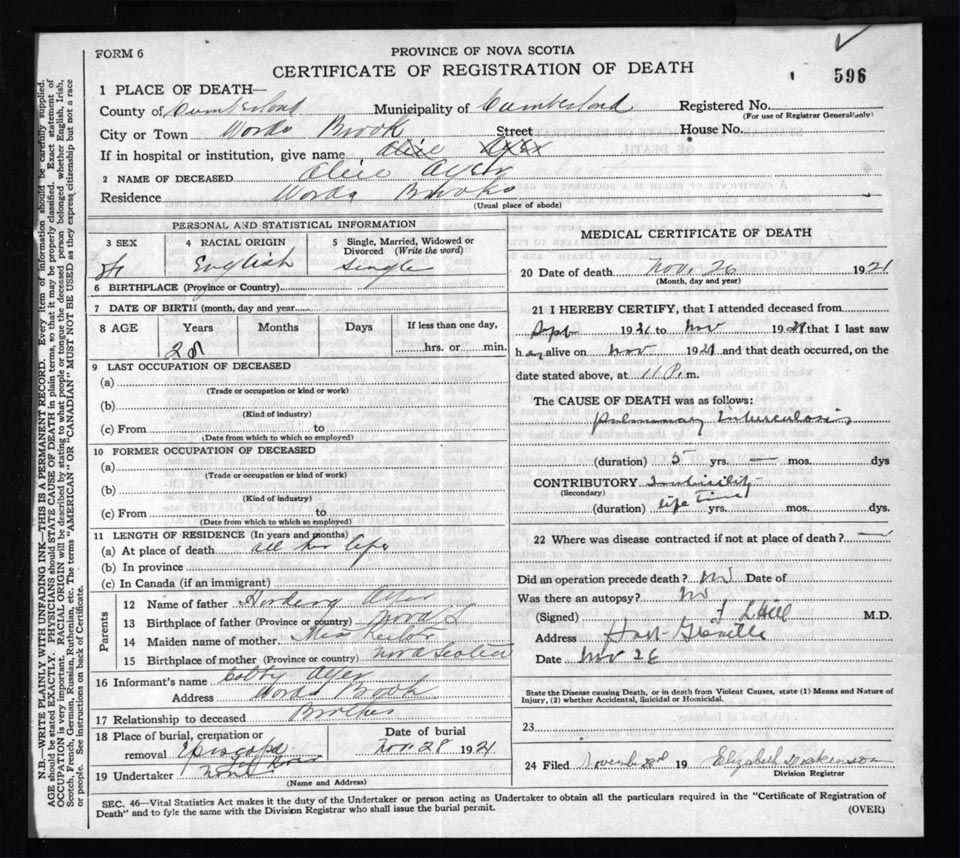 FORM 6
PROVINCE OF NOVA SCOTIA
CERTIFICATE OF REGISTRATION OF DEATH
596
1 PLACE OF DEATH—
County of Cumberland Municipality of Cumberland Registered No.
(For use of Registrar General only)
City or Town Wards Brook Street House No.
If in hospital or institution, give name Alice
2 NAME OF DECEASED Alice
Residence Wards Brooks
(Usual place of abode)
PERSONAL AND STATISTICAL INFORMATION
3 SEX 4 RACIAL ORIGIN 5 Single, Married, Widowed or Divorced (Write the word)
English Single
6 BIRTHPLACE (Province or Country)
7 DATE OF BIRTH (month, day and year
8 AGE Years Months Days If less than one day,
hrs. or min.
9 LAST OCCUPATION OF DECEASED
(a)
(Trade or occupation or kind or work)
(b)
(Kind of industry)
(c) From to
(Date from which to which so employed)
10 FORMER OCCUPATION OF DECEASED
(a)
(Trade or occupation or kind of work)
(b)
(Kind of industry)
(c) From to
(Date from which to which so employed)
11 LENGTH OF RESIDENCE (In years and months)
(a) At place of death all her life
(b) In province
(c) In Canada (if an immigrant)
Parents
12 Name of father
13 Birthplace of father (Province or country) Nova S
14 Maiden name of mother. Miss
15 Birthplace of mother (Province or country) Nova Scotia
16 Informant's name
Address Wards Brook
17 Relationship to deceased Brother
18 Place of burial, cremation or removal
Date of burial
Nov 28 1921
19 Undertaker none
(Name and Address)
MEDICAL CERTIFICATE OF DEATH
20 Date of death Nov. 26 1921
(Month, day and year)
21 I HEREBY CERTIFY, that I attended deceased from
Sept 19 to Nov 19 that I last saw
h alive on Nov 1921 and that death occurred, on the
date stated above, at 11 P. m.
The CAUSE OF DEATH was as follows:
Pulmonary Tuberculosis
(duration) 5 yrs. — mos. dys
CONTRIBUTORY
(Secondary)
(duration) life time yrs. mos. dys.
22 Where was disease contracted if not at place of death? —
Did an operation precede death? No Date of
Was there an autopsy? No
(Signed) Hill M.D.
Address
Date Nov 26
State the Disease causing Death, or in death from Violent Causes, state (1) Means and Nature of
Injury, (2) whether Accidental, Suicidal or Homicidal.
23
24 Filed November 19 Elizabeth
Division Registrar
SEC. 46—Vital Statistics Act makes it the duty of the Undertaker or person acting as Undertaker to obtain all the particulars required in the "Certificate of Registration of
Death" and to fyle the same with the Division Registrar who shall issue the burial permit.
(OVER)
N.B.—WRITE PLAINLY WITH UNFADING INK—THIS IS A PERMANENT RECORD. Every item of information should be carefully supplied.
AGE should be stated EXACTLY. PHYSICIANS should STATE CAUSE OF DEATH in plain terms, so that it may be properly classified. Exact statement of
OCCUPATION is very important. RACIAL ORIGIN will be described by stating to what people or tongue the deceased person belonged whether English, Irish,
Scotch, French, German, Russian, Ruthenian, etc. The terms "AMERICAN" OR "CANADIAN" MUST NOT BE USED as they express citizenship but not a race
or people. See instructions on back of Certificate.